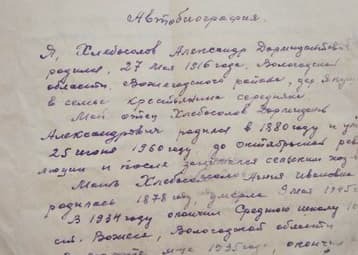 Автобиография.
Я, Хлебосолов Александр Дормидонтов
родился, 27 Мая 1916 года, Вологодская
области, Вожегодского района, дер
в семье крестьянина середняка
Мой отец Хлебосолов Дормидонт
Александрович родился в 1880 году и у
25 июня 1960 году, до октябрьской рев
люции и после занимался сельским хоз
Мать Хлебосолова Анна Ивановна
родилась 1878 году, умерла 9 мая 1945
В 1934 году окончил Среднюю школу
ст. Вожега, Вологодской области
1935 года,